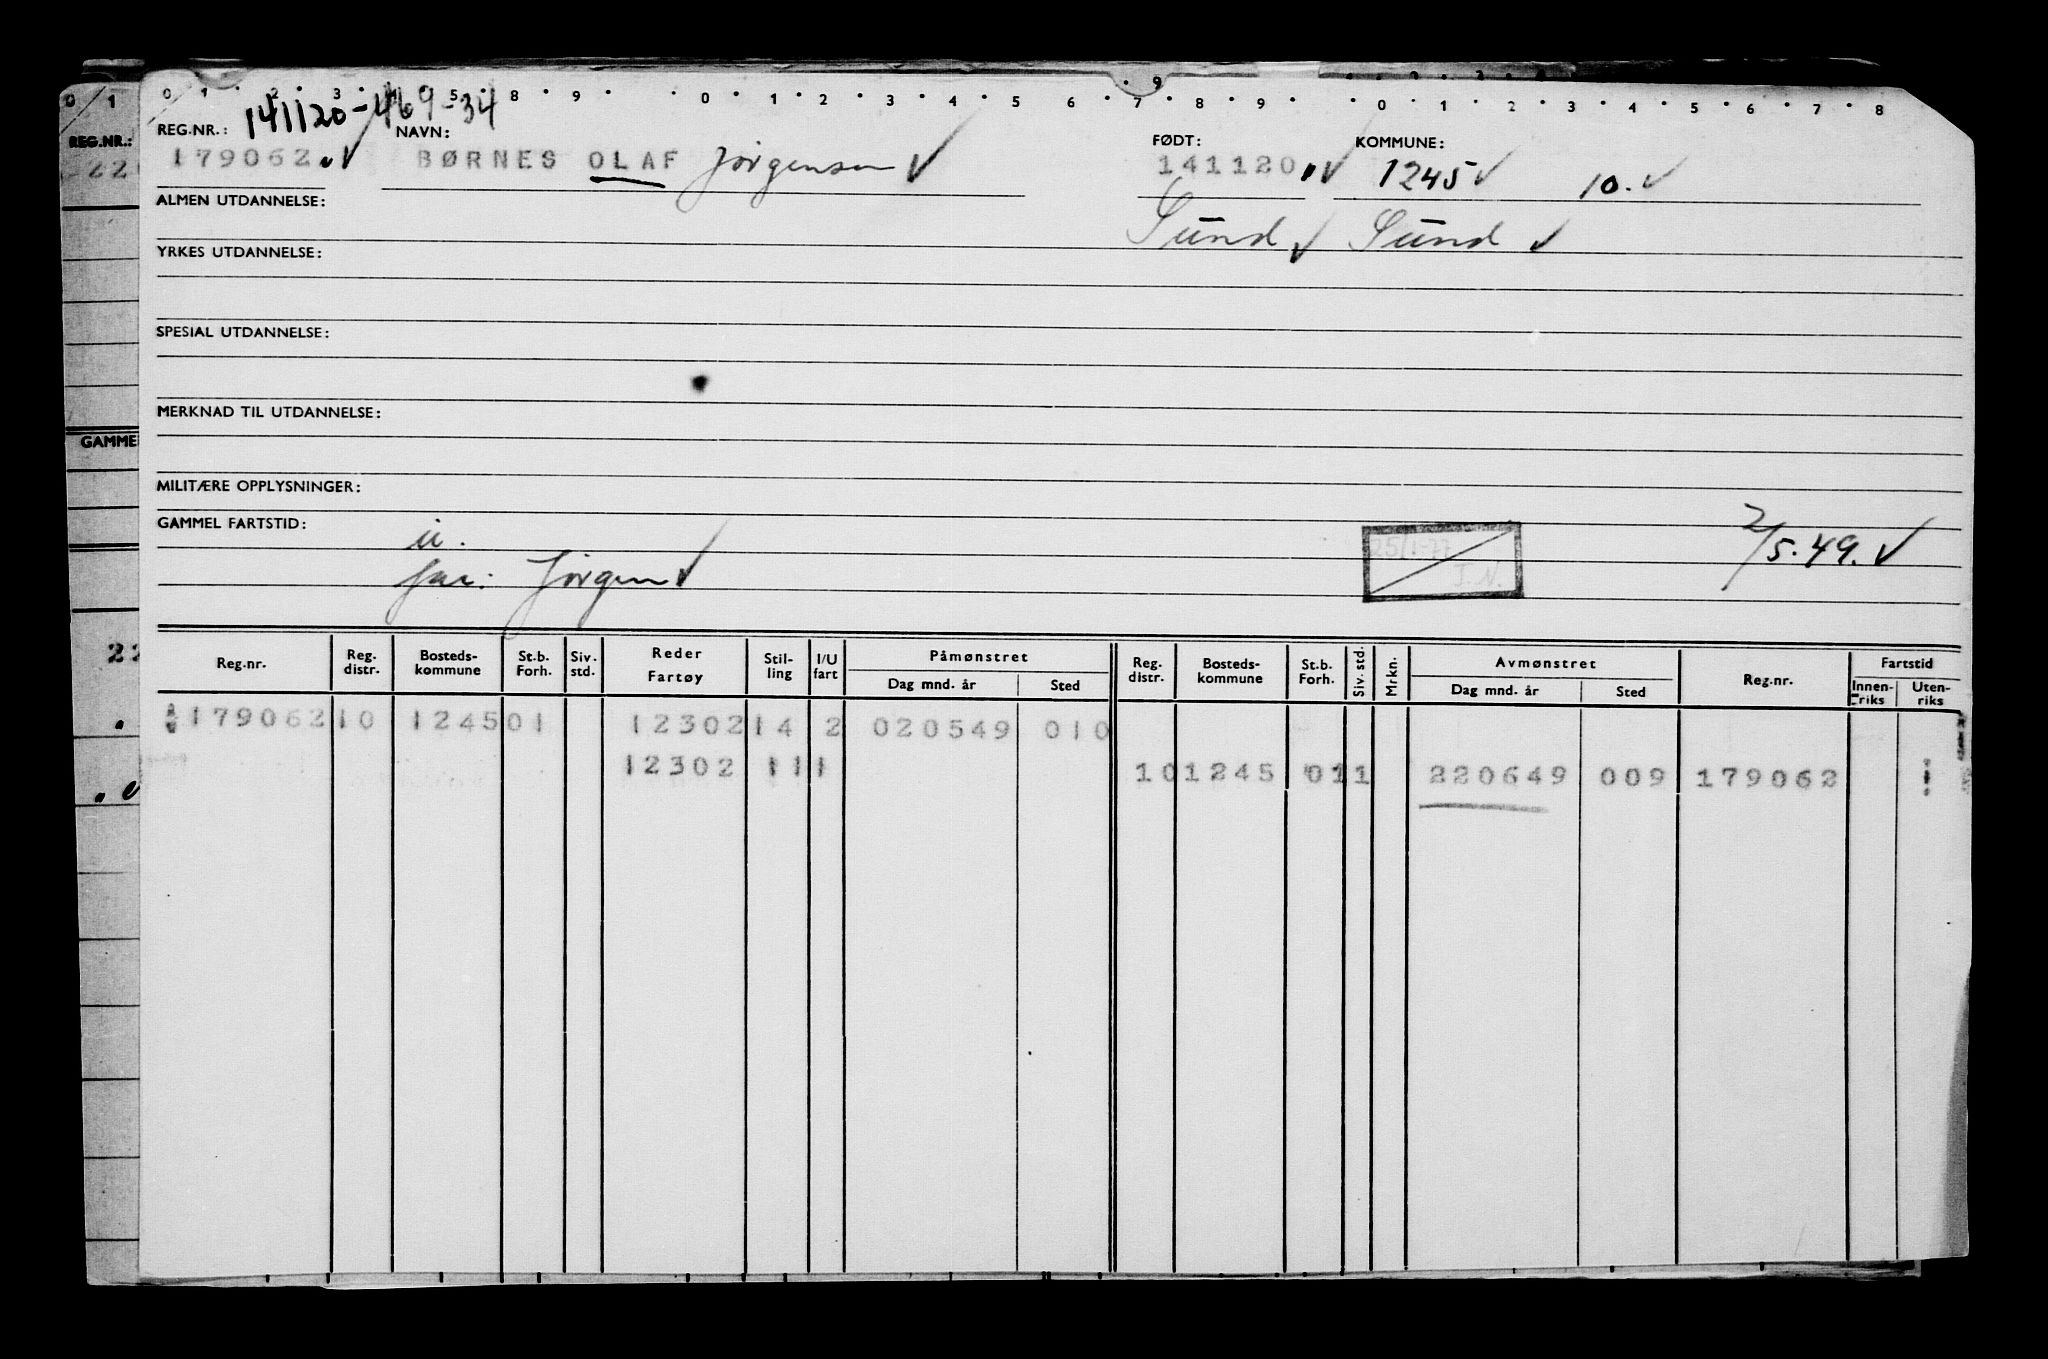 0 1 2 3 4 5 8 9 0 1 2 3 4 5 6 7 8 9 0 1 2 3 4 5 6 7 8
9
141120-469-34
REG.NR.: NAVN: FØDT: KOMMUNE:
179062. BØRNES OLAF Jørgensen 141120. 1245 10.
ALMEN UTDANNELSE: Sund Sund
YRKES UTDANNELSE:
SPESIAL UTDANNELSE:
MERKNAD TIL UTDANNELSE:
MILITÆRE OPPLYSNINGER:
GAMMEL FARTSTID: u. 25/1-77 2/5.49.
far: Jørgen J.N.
Reg.nr. Reg. distr. Bosteds-kommune St.b. Forh. Siv. std. Reder Fartøy Stil-ling I/U fart Påmønstret Dag mnd. år Sted Reg. distr. Bosteds-kommune St.b. Forh. Siv. std. Mrkn. Avmønstret Dag mnd. år Sted Reg.nr. Fartstid Innen-riks Uten-riks
179062 10 1245 01 12302 14 2 020549 010
12302 11 1 10 1245 01 1 220649 009 179062 1
0 1
REG.NR.:
22
GAMME
22